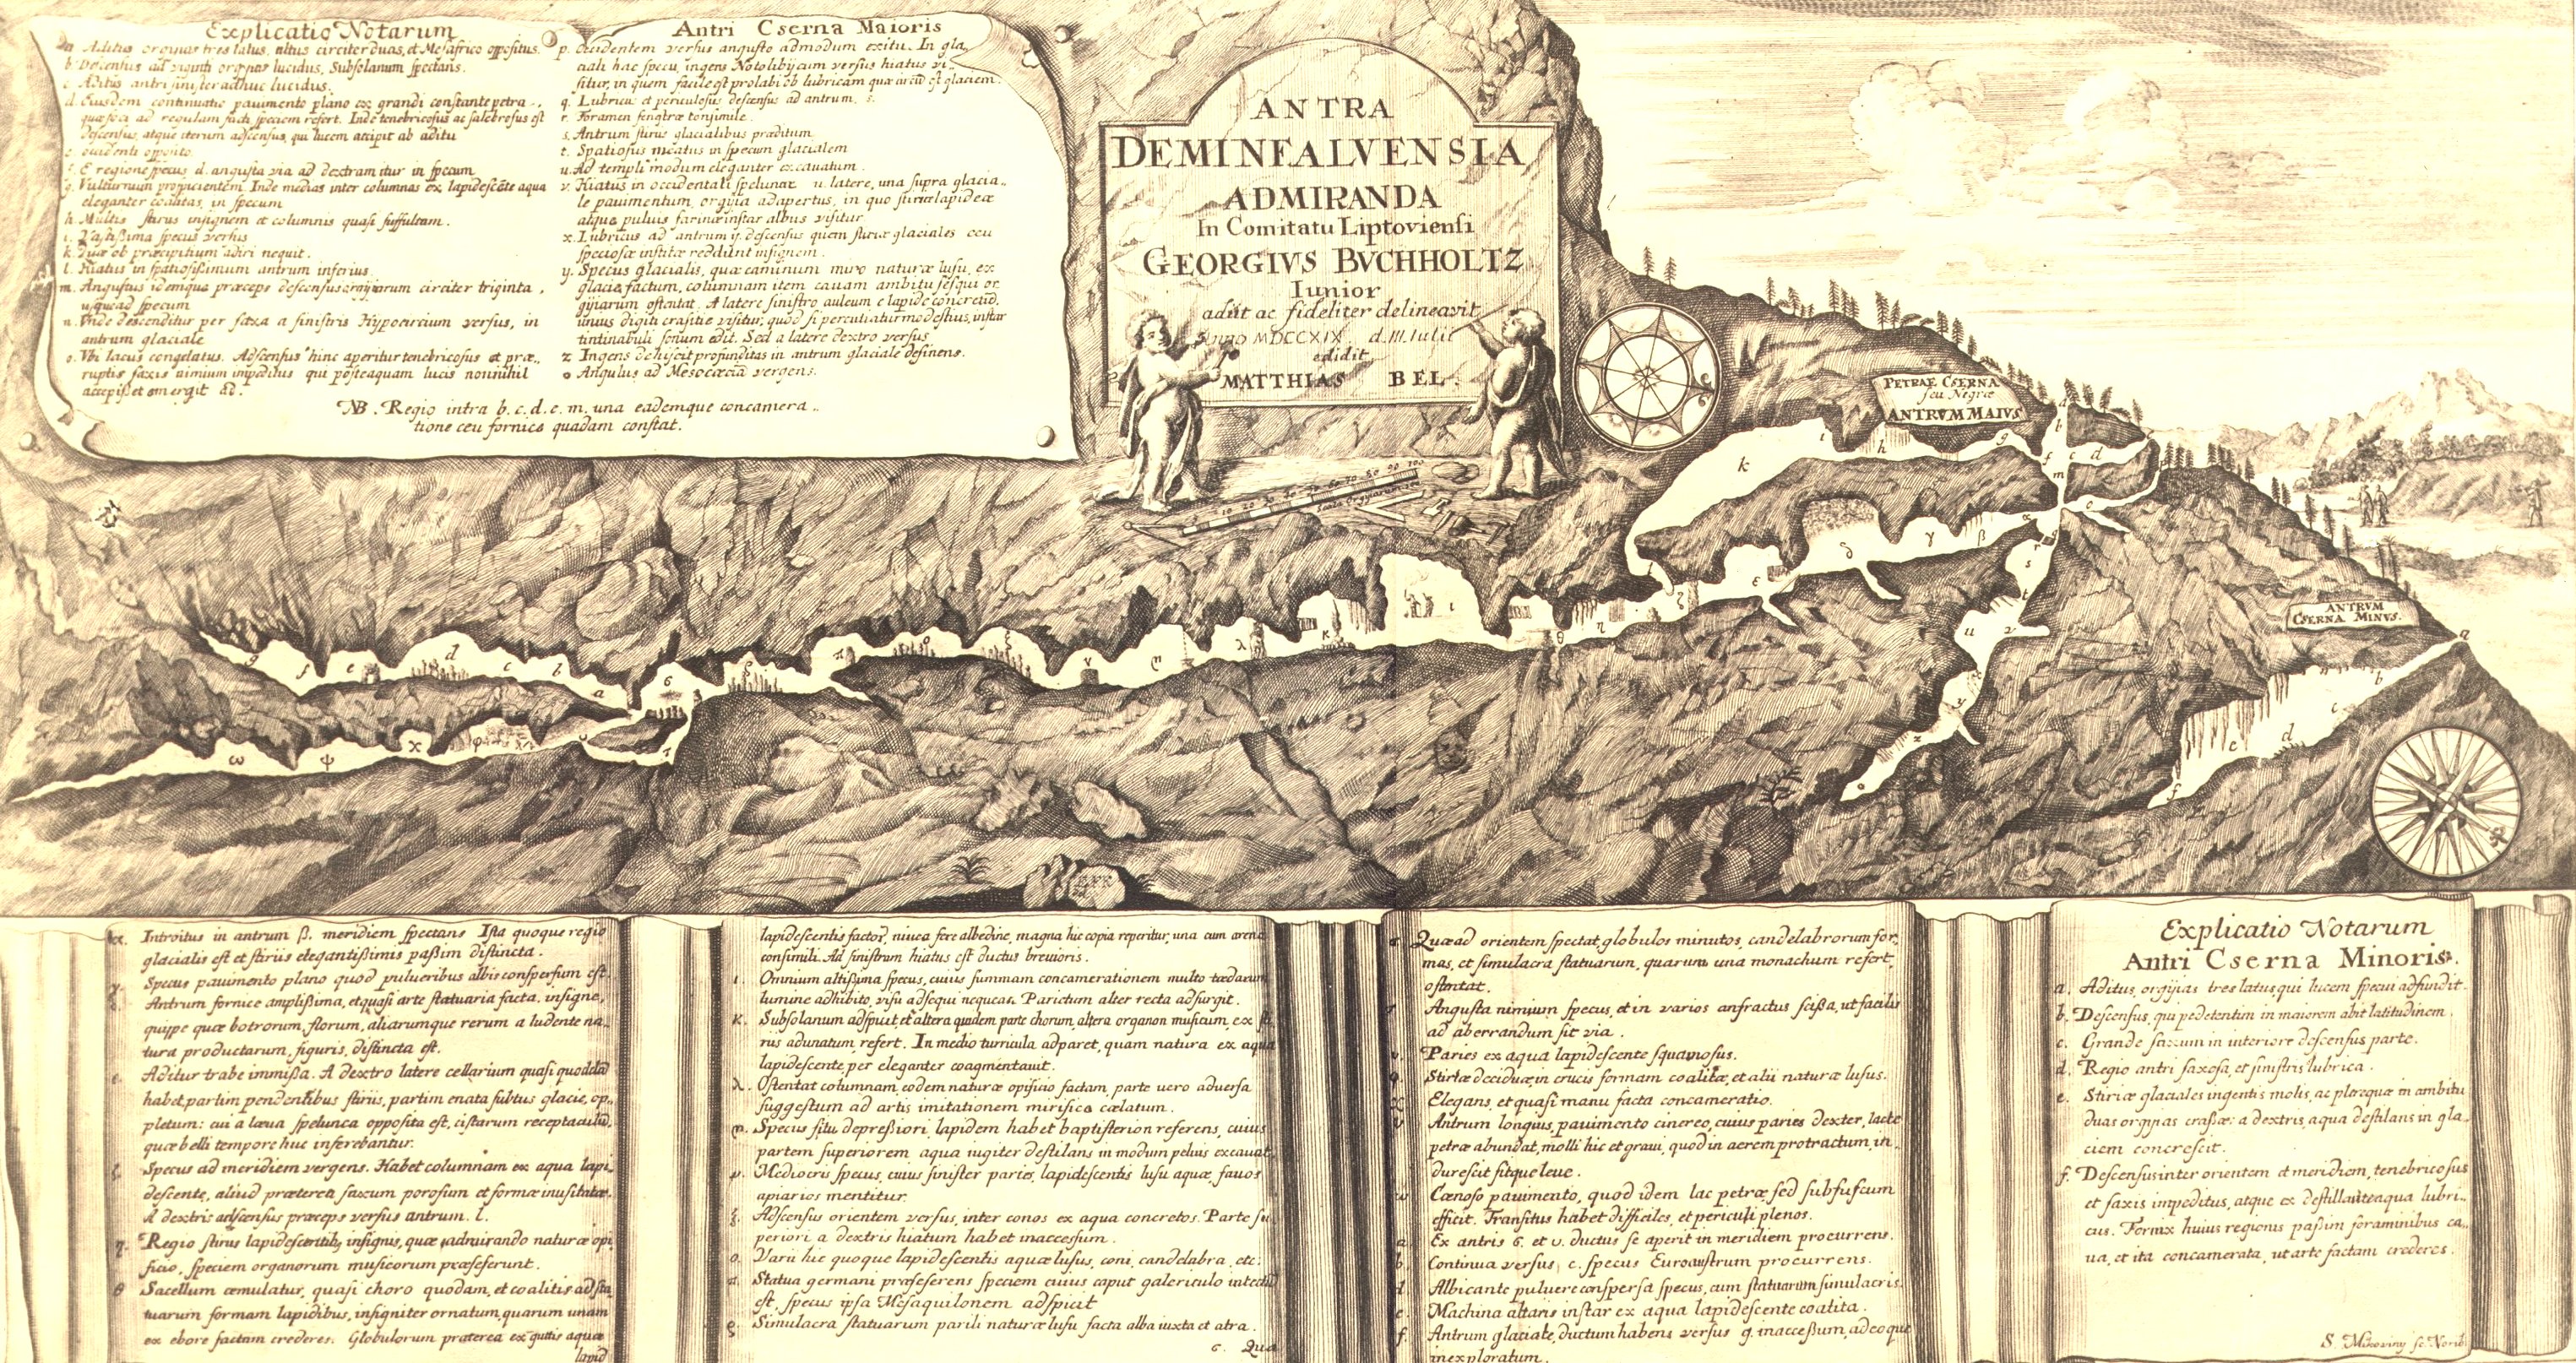 Explicatio Notarum
Antri Cserna Maioris
a Aditus orgyias tres latus, altus circiter duas, et Mesafrico oppositus.
b. Descensus ad viginti orgyias lucidus, Subsolanum spectans.
c. Aditus antri sinister adhuc lucidus.
d. Eiusdem continuatio pauimento plano ex grandi constante petra
quæ foci ad regulam facti speciem refert. Inde tenebricosus ac salebrosus est
descensus, atque iterum adscensus, qui lucem accipit ab aditu
e. occidenti opposito.
f. E regione specus d. angusta via ad dextram itur in specum
g. Vulturnum prospicientem. Inde medias inter columnas ex lapidescẽte aqua
eleganter coalitas, in specum
h. Multis stiriis insignem et columnis quasi suffultam.
i. Vastißima specus versus
k. Quæ ob præcipitium adiri nequit.
l. Hiatus in spatiosißimum antrum inferius.
m. Angustus idemque præceps descensus orgyiarum circiter triginta,
usque ad specum
n. Vnde descenditur per saxa a sinistris Hypocircium versus, in
antrum glaciale
o. Vbi lacus congelatus. Adscensus hinc aperitur tenebricosus et præ..
ruptis saxis nimium impeditus qui posteaquam lucis nonnihil
accepißet emergit ad.
p. Occidentem versus angusto admodum exitu. In gla
ciali hac specu, ingens Notolibycum versus hiatus vi..
situr, in quem facile est prolabi ob lubricam quæ circũ est glaciem.
q. Lubricus et periculosus descensus ad antrum. s.
r. Foramen fenestræ consimile.
s. Antrum stiriis glacialibus præditum
t. Spatiosus meatus in specum glacialem
u. Ad templi modum eleganter excauatum.
v. Hiatus in occidentali speluncæ u. latere, una supra glacia..
le pauimentum, orgyia adapertus, in quo stiriæ lapideæ
atque puluis farinæ instar albus visitur
x. Lubricus ad antrum y. descensus quem stiriæ glaciales ceu
speciosæ institæ reddunt insignem.
y. Specus glacialis, quæ caminum miro naturæ lusu, ex
glacie factum, columnam item cauam ambitu sesqui or
gyiarum ostentat. A latere sinistro auleum e lapide concretũ.
unius digiti craßitie visitur, quod si percutiatur modestius, instar
tintinabuli sonum edit. Sed a latere dextro versus
z Ingens dehiscit profunditas in antrum glaciale desinens.
o Angulus ad Mesocæciã vergens.
NB. Regio intra b. c. d. e. m. una eademque concamera..
tione ceu fornice quadam constat.
ANTRA
DEMINFALVENSIA
ADMIRANDA
In Comitatu Liptoviensi
GEORGIVS BVCHHOLTZ
Iunior
adiit ac fideliter delineavit
Anno MDCCXIX d. III. Iulii
edidit
MATTHIAS BEL.
10 20 30 40 50 60 70 80 90 100
Scala Orgyiarum
PETRAE CSERNA
seu Nigræ
ANTRVM MAIVS
ANTRVM
CSERNA MINVS.
α. Introitus in antrum β. meridiem spectans Ista quoque regio
glacialis est et stiriis elegantißimis paßim distincta.
γ. Specus pauimento plano quod pulueribus albis conspersum est.
δ. Antrum fornice amplißima, et quasi arte statuaria facta, insigne,
quippe quæ botrorum, florum, aliarumque rerum a ludente na
tura productarum, figuris, distincta est.
ε. Aditur trabe immißa. A dextro latere cellarium quasi quoddã
habet, partim pendentibus stiriis, partim enata subtus glacie, op..
pletum: cui a læua spelunca opposita est, cistarum receptaculũ,
quæ belli tempore huc inferebantur.
ζ. Specus ad meridiem vergens. Habet columnam ex aqua lapi..
descente, aliud præterea saxum porosum et formæ inusitatæ.
A dextris adscensus præceps versus antrum. l.
η. Regio stiriis lapidescentibus insignis, quæ admirando naturæ opi
ficio, speciem organorum musicorum præseferunt.
θ Sacellum æmulatur, quasi choro quodam, et coalitis ad sta
tuarum formam lapidibus, insigniter ornatum, quarum unam
ex ebore factam crederes. Globulorum præterea ex guttis aquæ
lapid
lapidescentis factor, niuea fere albedine, magna hic copia reperitur, una cum arena
consimili. Ad sinistrum hiatus est ductus breuioris.
ι. Omnium altißima specus, cuius summam concamerationem multo tædarum
lumine adhibito, visu adsequi nequeas. Parietum alter recta adsurgit.
κ. Subsolanum adspicit, et altera quidem parte chorum, altera organon musicum, ex sti
riis adunatum, refert. In medio turricula adparet, quam natura ex aqua
lapidescente per eleganter coagmentauit.
λ. Ostentat columnam eodem naturæ opificio factam, parte uero aduersa
suggestum ad artis imitationem mirifice cælatum.
μ. Specus situ depreßiori, lapidem habet baptisterion referens, cuius
partem superiorem aqua iugiter destilans in modum peluis excauat.
ν. Mediocris specus, cuius sinister paries, lapidescentis lusu aquæ, fauos
apiarios mentitur.
ξ. Adscensus orientem versus, inter conos ex aqua concretos. Parte su
periori a dextris hiatum habet inaccessum.
ο. Varii hic quoque lapidescentis aquæ lusus, coni, candelabra, etc:
π. Statua germani præseferens speciem cuius caput galericulo intectũ
est, specus ipsa Mesaquilonem adspicit
ρ. Simulacra statuarum parili naturæ lusu facta alba iuxta et atra.
σ. Quæ
σ. Quæ ad orientem spectat, globulos minutos, candelabrorum for
mas, et simulacra statuarum, quarum una monachum refert,
ostentat.
τ Angusta nimium specus, et in varios anfractus scißa, ut facilis
ad aberrandum sit via.
υ. Paries ex aqua lapidescente squamosus.
φ. Stiriæ deciduæ in crucis formam coalitæ, et alii naturæ lusus.
χ Elegans, et quasi manu facta concameratio.
ψ Antrum longius, pauimento cinereo, cuius paries dexter, lacte
petræ abundat, molli hic et graui, quod in aerem protractum, in
durescit sitque leue.
ω Cœnoso pauimento, quod idem lac petræ sed subfuscum
efficit. Transitus habet difficiles, et periculi plenos.
a. Ex antris σ. et υ. ductus se aperit in meridiem procurrens.
b. Continua versus, c. specus Euroaustrum procurrens.
d Albicante puluere conspersa specus, cum statuarum simulacris.
e Machina altaris instar ex aqua lapidescente coalita.
f. Antrum glaciale, ductum habens versus g. inacceßum, adeoque
inexploratum.
Explicatio Notarum
Antri Cserna Minoris.
a. Aditus, orgyias tres latus, qui lucem specui adfundit.
b. Descensus, qui pedetentim in maiorem abit latitudinem.
c. Grande saxum in interiore descensus parte.
d. Regio antri saxosa, et sinistris lubrica.
e. Stiriæ glaciales ingentis molis, ac pleræquæ in ambitu
duas orgyias craßæ: a dextris, aqua destilans in gla..
ciem concrescit.
f. Descensus inter orientem et meridiem, tenebricosus
et saxis impeditus, atque ex destillante aqua lubri..
cus. Fornix huius regionis paßim foraminibus ca..
ua, et ita concamerata, ut arte factam crederes.
S. Mikoviny sc. Norib.